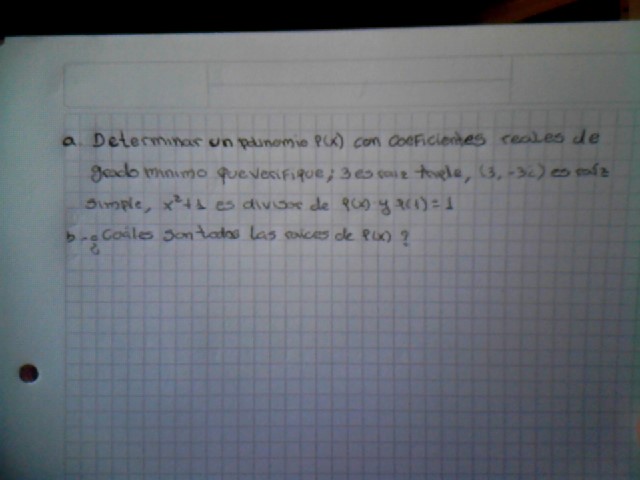 a. Determinar un polinomio P(x) con coeficientes reales de
grado minimo que verifique; 3 es raiz triple, (3, -3i) es raíz
simple, x²+1 es divisor de P(x) y P(1)=1
b.- ¿Cuáles son todas las raices de P(x)?